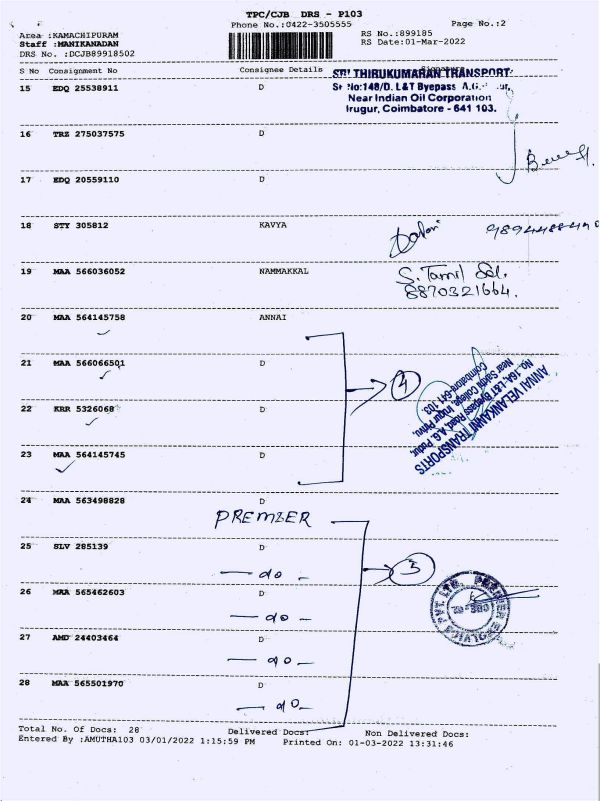 TPC/CJB DRS - P103
Phone No.:0422-3505555
Page No.:2
Area :KAMACHIPURAM
RS No.:899185
Staff :MANIKANADAN
RS Date:01-Mar-2022
DRS No. :DCJB89918502
S No Consignment No Consignee Details Signature
SRI THIRUKUMARAN TRANSPORT
15 EDQ 25538911 D
No:148/D. L&T Byepass
Near Indian Oil Corporation
Irugur, Coimbatore - 641 103.
16 TRZ 275037575 D
17 EDQ 20559110 D
18 STY 305812 KAVYA
19 MAA 566036052 NAMMAKKAL
S. Tamil Sel.
8870321664.
20 MAA 564145758 ANNAI
21 MAA 566066501 D
4
ANNAI VELANKANNI TRANSPORTS
No. 16A, L&T Byepass Road, A.G. Pudur,
Near Sathi College, Irugur Pirivu,
Coimbatore-641 103.
22 KRR 5326068 D
23 MAA 564145745 D
24 MAA 563498828 D
PREMIER
25 SLV 285139 D
— do —
5
26 MAA 565462603 D
— do —
PVT. LTD. PREMIER
27 AMD 24403464 D
— do —
28 MAA 565501970 D
— do —
Total No. Of Docs: 28 Delivered Docs: Non Delivered Docs:
Entered By :AMUTHA103 03/01/2022 1:15:59 PM Printed On: 01-03-2022 13:31:46